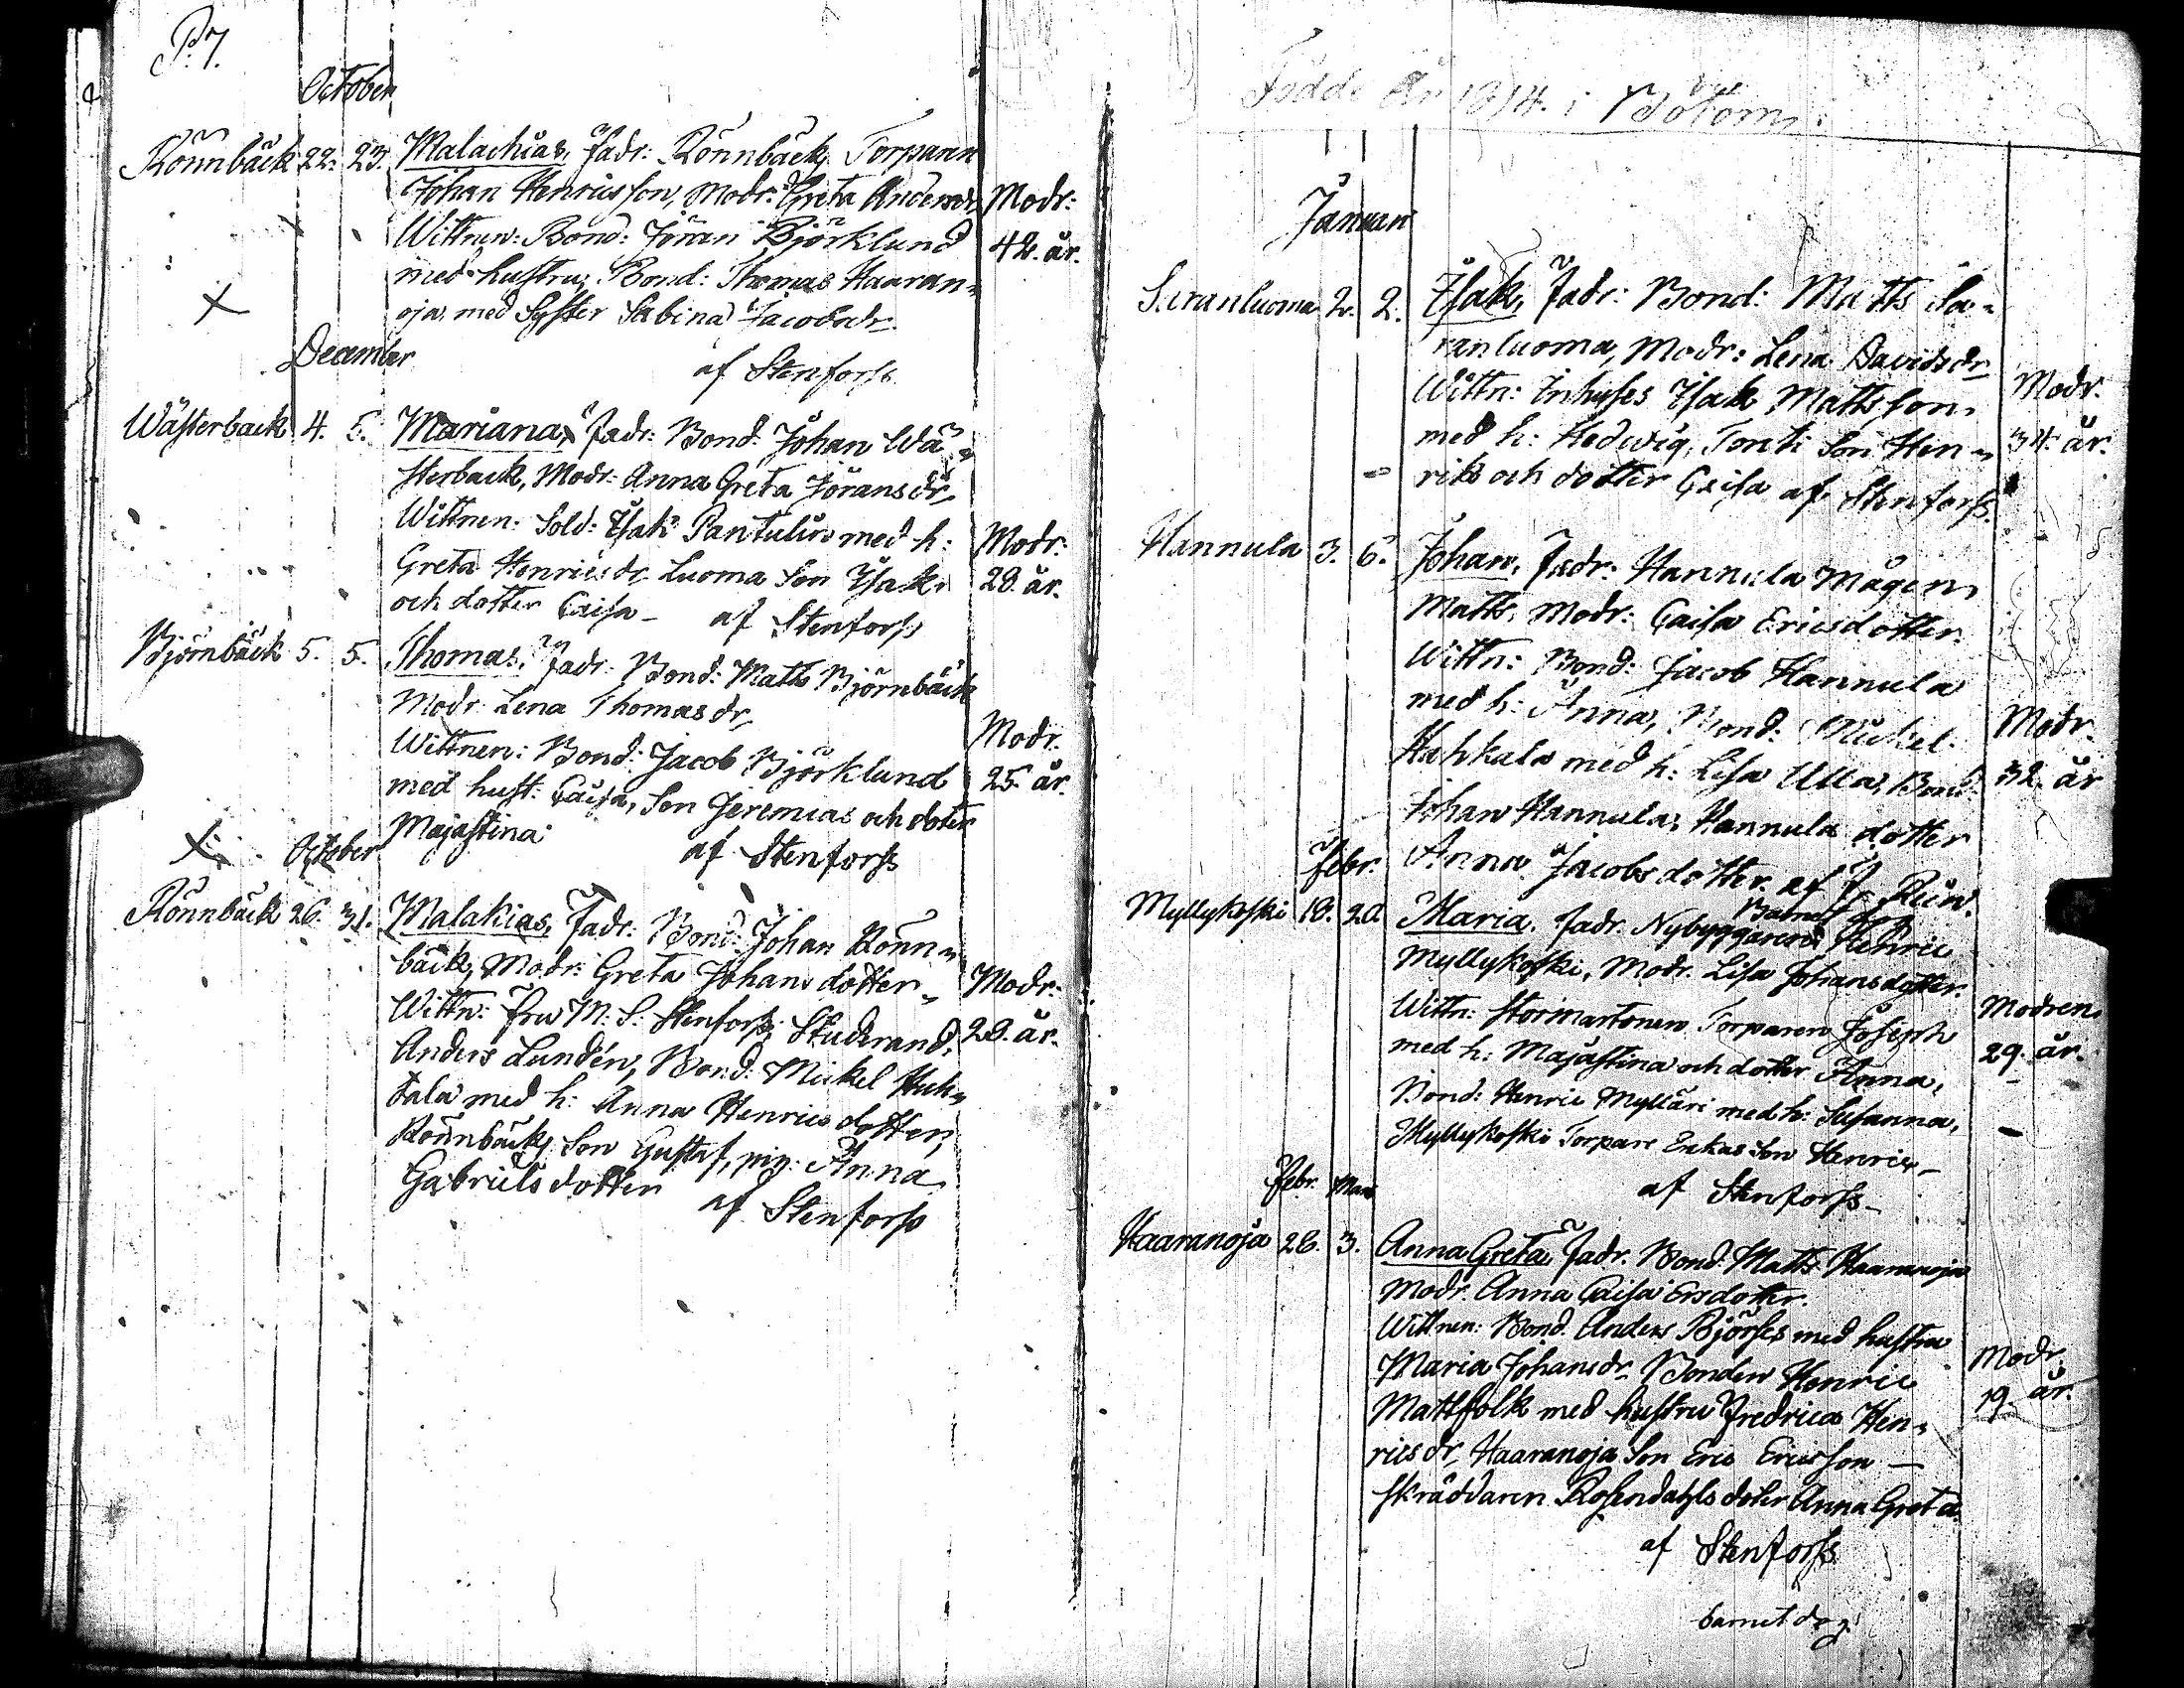 P. 7.
October
Rönnbäck 22. 23. Malachias, Fadr: Rönnbäck Torparen
Johan Henricsson, Modr: Greta Andersdr
Wittnen: Bond: Jöran Björklund
med hustru, Bond: Thomas Haaran=
oja med Syster Sabina Jacobsdr.
af Stenforss
Modr:
42. år.
December
Wästerback 4. 5. Mariana, Fadr: Bond: Johan Wä=
sterback, Modr: Anna Greta Jöransdr
Wittnen: Sold: Isak Pantulin med h:
Greta Henricsdr Luoma Son Isak
och dotter Caisa - af Stenforss
Modr:
28. år.
Björnbäck 5. 5. Thomas, Fadr: Bond: Matts Björnbäck
Modr: Lena Thomasdr,
Wittnen: Bond: Jacob Björklund
med hust: Caisa, Son Jeremias och doter
Majastina
af Stenforss
Modr.
25. år.
October
Rönnbäck 26. 31. Malakias, Fadr: Bond: Johan Rönn=
bäck, Modr: Greta Johansdotter
Wittn: Fru M: S: Stenforss, Studerand:
Anders Lundén, Bond: Mickel
med h: Anna Henricsdotter,
Rönnbäck Son Gustaf, pig: Anna
Gabrielsdotter
af Stenforss
Modr:
28. år.
Födde År 1814. i Bötom
Januari
Saranluoma 2. 2. Isak, Fadr: Bond: Matts Sa=
ranluoma, Modr: Lena Davidsdr
Wittn: Inhyses Isak Mattsson
med h: Hedwig, Tonti Son Hen=
rik och dotter Caisa af Stenforss.
Modr.
34. år.
Hannula 3. 6. Johan, Fadr: Hannula Mågen
Matts, Modr: Caisa Ericsdotter.
Wittn: Bond: Jacob Hannula
med h: Anna, Bond: Mickel
Hahkala med h: Lisa Ulla, Bond:
Johan Hannula, Hannula dotter
Anna Jacobsdotter. af
Modr.
32. år
Febr.
Myllykoski 18. 20. Maria, Fadr. Nybyggaren Henric
Myllykoski, Modr. Lisa Johansdotter.
Wittn: Stormartonen Torparen Joseph
med h: Majastina och dotter Anna,
Bond: Henric Mylläri med h: Susanna,
Myllykoski Torpare Enkas Son Henric -
af Stenforss -
Modren
29. år.
Febr. Mars
Haaranoja 26. 3. Anna Greta, Fadr. Bond. Matts Haaranoja
Modr. Anna Caisa Ersdotter.
Wittnen: Bond. Anders Björses med hustru
Maria Johansdr, Bonden Henric
Mattfolk med hustru Fredrica Hen=
ricsdr, Haaranoja Son Eric Ericsson -
Skräddaren Rosendahls doter Anna Greta.
af Stenforss
Modr.
19. år.
barnet dog